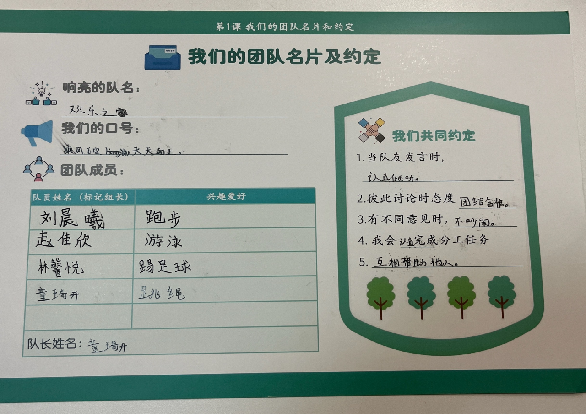 第1课 我们的团队名片和约定
我们的团队名片及约定
响亮的队名:
欢乐之家
我们的口号:
天天向上。
团队成员:
队员姓名(标记组长) 兴趣爱好
刘晨曦 跑步
赵佳欣 游泳
林馨悦 踢足球
童瑞开 跳绳
队长姓名: 童瑞开
我们共同约定
1. 当队友发言时,
认真倾听。
2. 彼此讨论时态度 团结合作。
3. 有不同意见时, 不吵闹。
4. 我会 完成分工任务
5. 互相帮助他人。